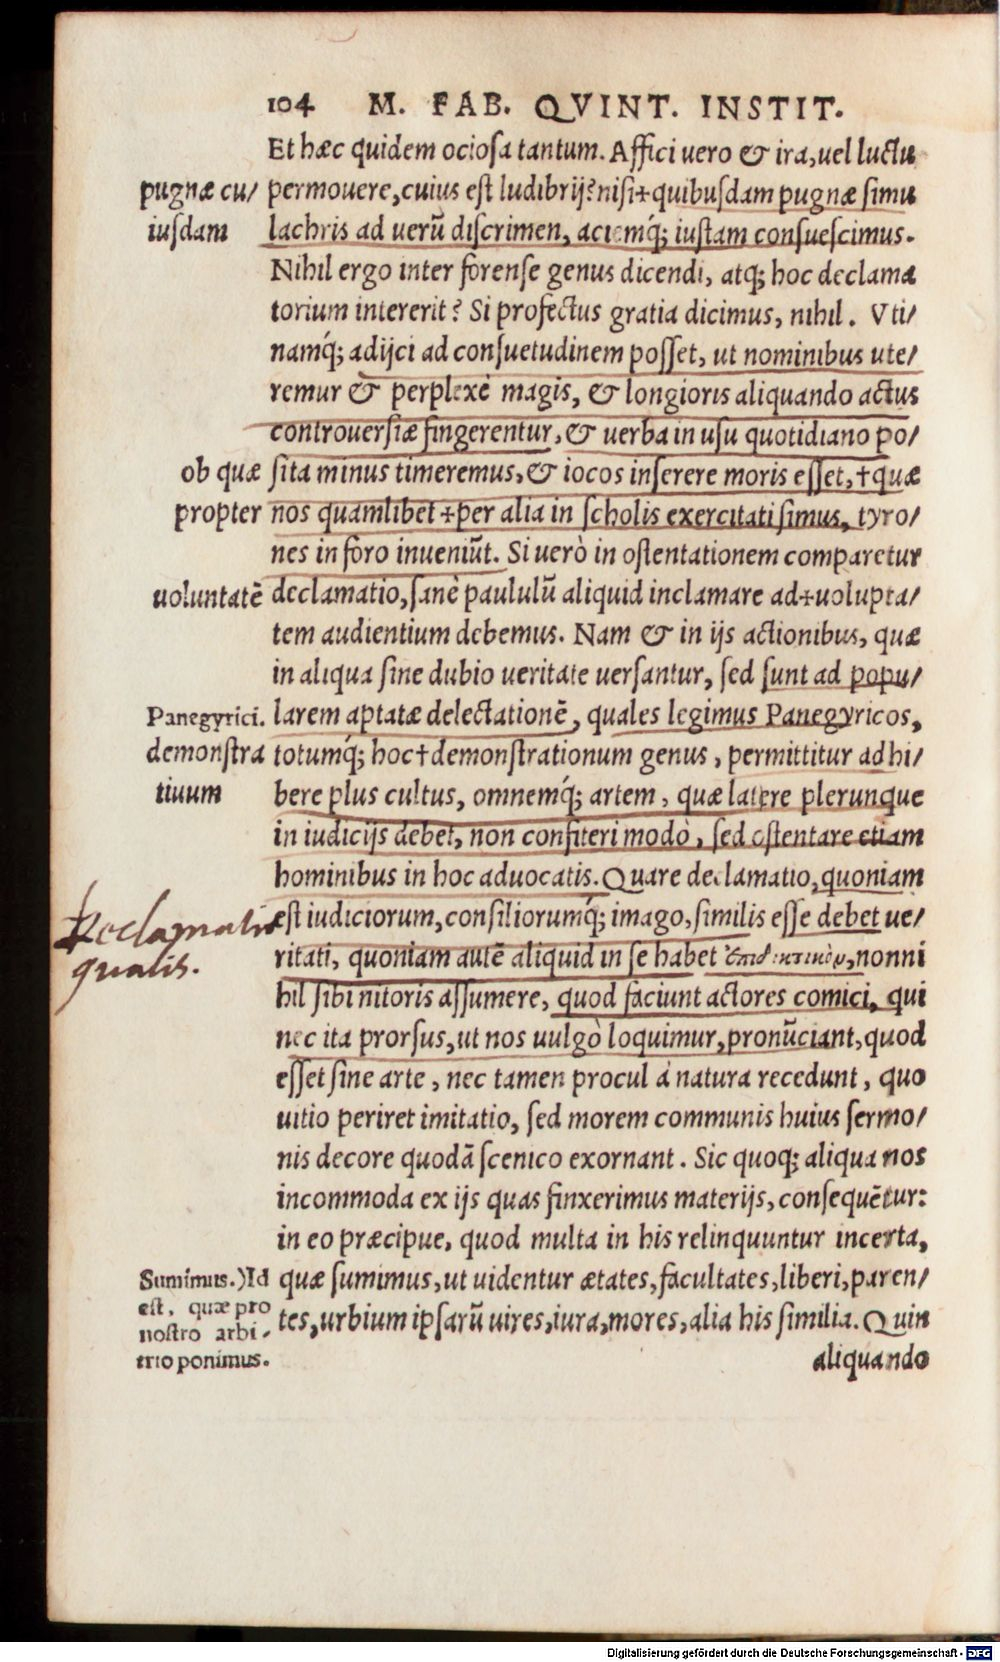 104 M. FAB. QVINT. INSTIT.
Et hæc quidem ociosa tantum. Affici uero & ira, uel luctu
pugnæ cu/
permouere, cuius est ludibrij? nisi+quibusdam pugnæ simu
iusdam
lachris ad uerū discrimen, aciemq́; iustam consuescimus.
Nihil ergo inter forense genus dicendi, atq; hoc declama
torium intererit? Si profectus gratia dicimus, nihil. Vti/
namq́; adijci ad consuetudinem posset, ut nominibus ute/
remur & perplexè magis, & longioris aliquando actus
controuersiæ fingerentur, & uerba in usu quotidiano po/
ob quæ
sita minus timeremus, & iocos inserere moris esset, †quæ
propter
nos quamlibet+per alia in scholis exercitati simus, tyro/
nes in foro inueniūt. Si uerò in ostentationem comparetur
uoluntatē
declamatio, sanè paululū aliquid inclamare ad+uolupta/
tem audientium debemus. Nam & in ijs actionibus, quæ
in aliqua sine dubio ueritate uersantur, sed sunt ad popu/
Panegyrici.
larem aptatæ delectationē, quales legimus Panegyricos,
demonstra
totumq́; hoc†demonstrationum genus, permittitur adhi/
tiuum
bere plus cultus, omnemq́; artem, quæ latere plerunque
in iudicijs debet, non confiteri modò, sed ostentare etiam
hominibus in hoc aduocatis. Quare declamatio, quoniam
Declamatio
est iudiciorum, consiliorumq́; imago, similis esse debet ue/
qualis.
ritati, quoniam autē aliquid in se habet ἐπιδεικτικὸν, nonni
hil sibi nitoris assumere, quod faciunt actores comici, qui
nec ita prorsus, ut nos uulgò loquimur, pronūciant, quod
esset sine arte, nec tamen procul à natura recedunt, quo
uitio periret imitatio, sed morem communis huius sermo/
nis decore quodā scenico exornant. Sic quoq; aliqua nos
incommoda ex ijs quas finxerimus materijs, consequētur:
in eo præcipue, quod multa in his relinquuntur incerta,
Sumimus.)Id
quæ sumimus, ut uidentur ætates, facultates, liberi, paren/
est, quæ pro
nostro arbi-
tes, urbium ipsarū uires, iura, mores, alia his similia. Quin
trio ponimus.
aliquando
Digitalisierung gefördert durch die Deutsche Forschungsgemeinschaft - DFG